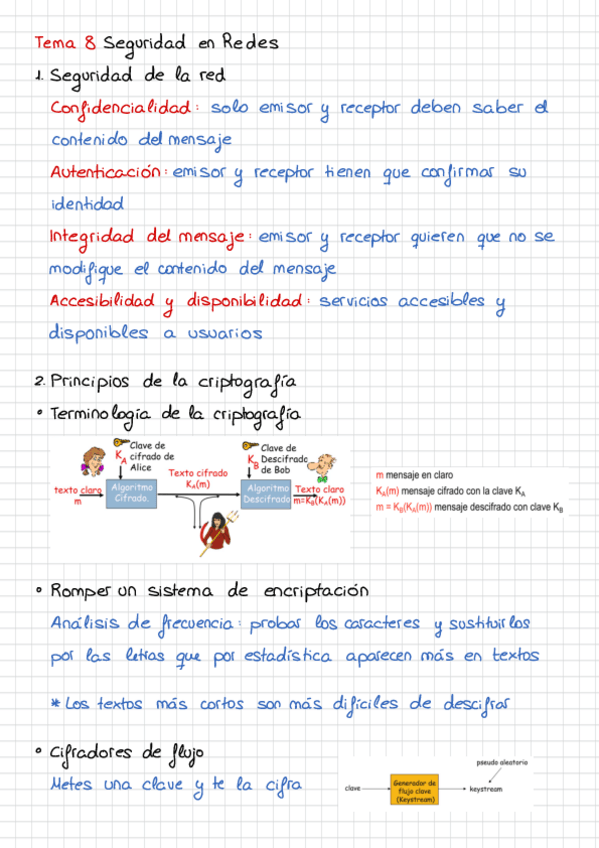 Tema 8 Seguridad en Redes
1. Seguridad de la red
Confidencialidad: solo emisor y receptor deben saber el
contenido del mensaje
Autenticación: emisor y receptor tienen que confirmar su
identidad
Integridad del mensaje: emisor y receptor quieren que no se
modifique el contenido del mensaje
Accesibilidad y disponibilidad: servicios accesibles y
disponibles a usuarios
2. Principios de la criptografía
• Terminología de la criptografía
KA Clave de
cifrado de
Alice
KB Clave de
Descifrado
de Bob
texto claro
m
Algoritmo
Cifrado.
Texto cifrado
KA(m)
Algoritmo
Descifrado
Texto claro
m=KB(KA(m))
m mensaje en claro
KA(m) mensaje cifrado con la clave KA
m = KB(KA(m)) mensaje descifrado con clave KB
• Romper un sistema de encriptación
Análisis de frecuencia: probar los caracteres y sustituirlos
por las letras que por estadística aparecen más en textos
* Los textos más cortos son más difíciles de descifrar
• Cifradores de flujo
Metes una clave y te la cifra
pseudo aleatorio
clave
Generador de
flujo clave
(Keystream)
keystream